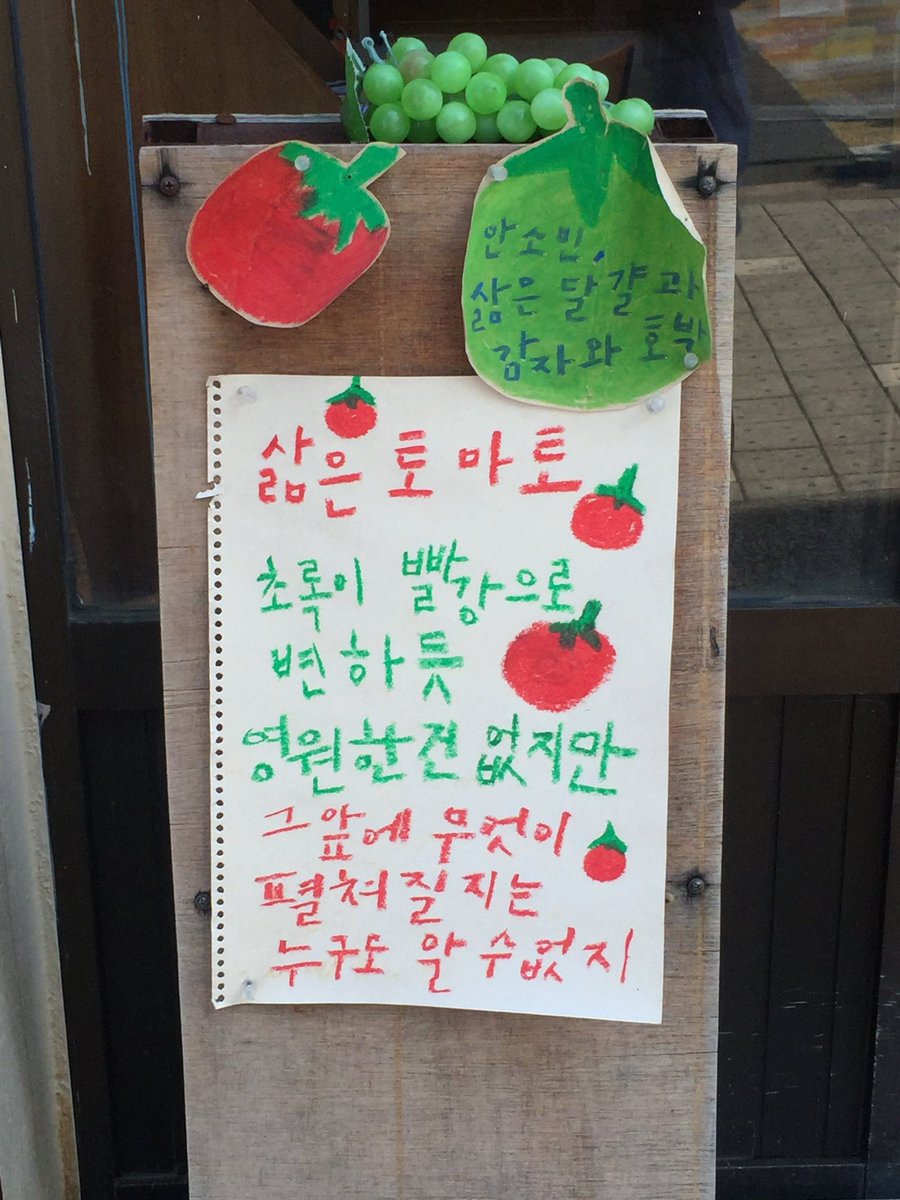 안소민,
삶은 달걀과
감자와 호박
삶은 토마토
초록이 빨강으로
변하듯
영원한건 없지만
그앞에 무엇이
펼쳐질지는
누구도 알 수 없지